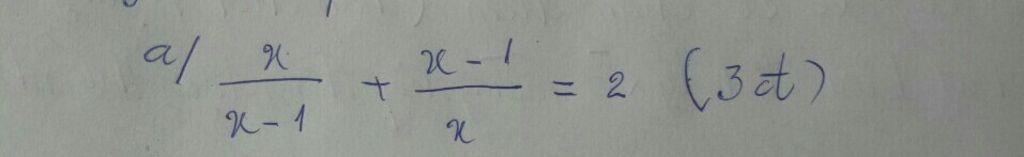 a/ x/(x-1) + (x-1)/x = 2 (3đ)